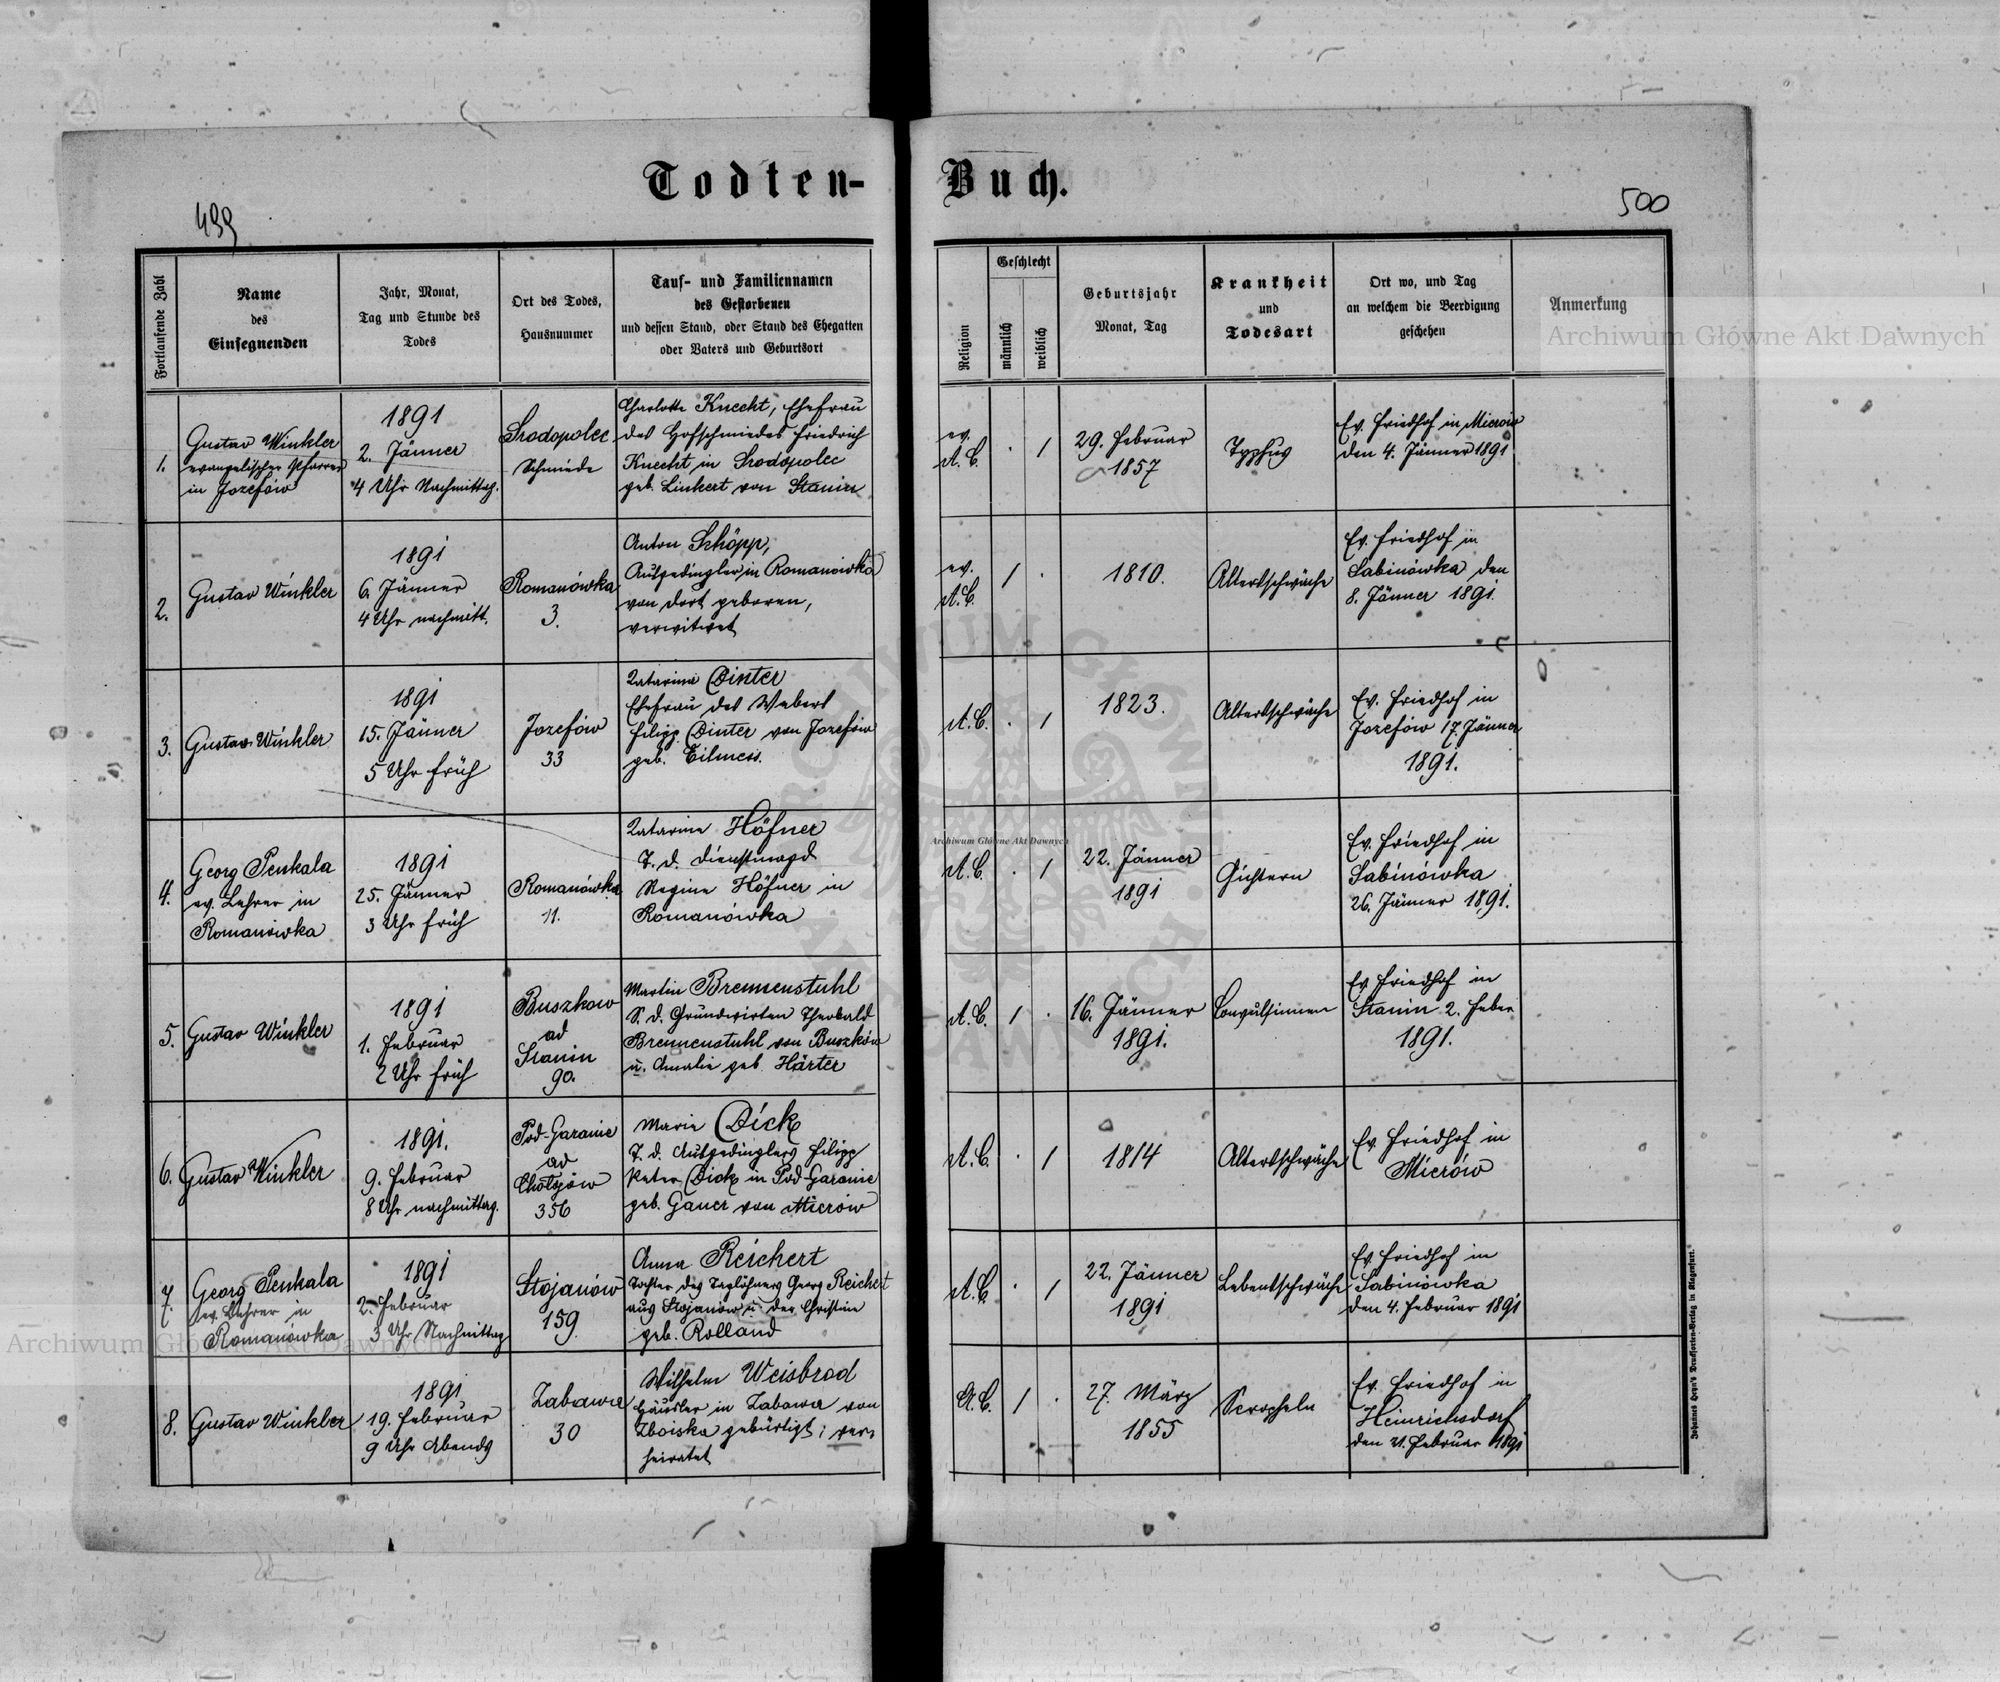 Todten-
Buch.
499
500
Fortlaufende Zahl
Name
des
Einsegnenden
Jahr, Monat,
Tag und Stunde des
Todes
Ort des Todes,
Hausnummer
Tauf- und Familiennamen
des Gestorbenen
und dessen Stand, oder Stand des Ehegatten
oder Vaters und Geburtsort
Religion
Geschlecht
männlich
weiblich
Geburtsjahr
Monat, Tag
Krankheit
und
Todesart
Ort wo, und Tag
an welchem die Beerdigung
geschehen
Anmerkung
1.
Gustav Winkler
evangelischer Pfarrer
in Jozefów
1891
2. Jänner
4 Uhr Nachmittag.
Srodopolec
Schmiede
Charlotte Knecht, Ehefrau
des Hofschmiedes Friedrich
Knecht in Srodopolec
geb. Linkert von Stanin
ev.
A.C.
. 1
29. Februar
1857
Typhus
Ev. Friedhof in Mierow
den 4. Jänner 1891
2.
Gustav Winkler
1891
6. Jänner
4 Uhr nachmitt.
Romanówka
3.
Anton Schöpp,
Ausgedingler in Romanówka
von dort geboren,
verwitwet
ev.
A.C.
1 .
1810.
Altersschwäche
Ev. Friedhof in
Sabinówka den
8. Jänner 1891.
3.
Gustav Winkler
1891
15. Jänner
5 Uhr früh
Jozefów
33
Katarina Dinter
Ehefrau des Webers
Filipp Dinter von Jozefów
geb. Eilmess.
A.C.
. 1
1823.
Altersschwäche
Ev. Friedhof in
Jozefów 17. Jänner
1891.
4.
Georg Penkala
ev. Lehrer in
Romanówka
1891
25. Jänner
3 Uhr früh
Romanówka
11.
Katarine Höfner
T. d. Dienstmagd
Regine Höfner in
Romanówka
A.C.
. 1
22. Jänner
1891
Gichtern
Ev. Friedhof in
Sabinówka
26. Jänner 1891.
5.
Gustav Winkler
1891
1. Februar
2 Uhr früh
Buszkow
ad
Stanin
90.
Martin Brennenstuhl
S. d. Grundwirten Theobald
Brennenstuhl von Buszków
u. Amalie geb. Härter
A.C.
1 .
16. Jänner
1891.
Convulsinnen
Ev. Friedhof in
Stanin 2. Feber
1891.
6.
Gustav Winkler
1891.
9. Februar
8 Uhr nachmittag.
Pod-Garanie
ad
Chołojów
356
Marie Dick
T. d. Ausgedinglers Filipp
Peter Dick in Pod Garanie
geb. Gauer von Mierów
A.C.
. 1
1814
Altersschwäche
Ev. Friedhof in
Mierów
7.
Georg Penkala
ev. Lehrer in
Romanówka
1891
2. Februar
3 Uhr Nachmittag
Stojanów
159.
Anna Reichert
Tochter des Taglöhners Georg Reichert
aus Stojanów u. der Christine
geb. Rolland
A.C.
. 1
22. Jänner
1891
Lebensschwäche
Ev. Friedhof in
Sabinówka
den 4. Februar 1891
8.
Gustav Winkler
1891
19. Februar
9 Uhr Abends
Zabawa
30
Wilhelm Weisbrod
Häusler in Zabawa von
Zboiska gebürtigt; ver=
heiratet
A.C.
1 .
27. März
1855
Scropheln
Ev. Friedhof in
Heinrichsdorf
den 21. Februar 1891
Johannes Heyn's Drucksorten-Verlag in Klagenfurt.
Archiwum Główne Akt Dawnych
Archiwum Główne Akt Dawnych
Archiwum Główne Akt Dawnych
ARCHIWUM GŁÓWNE AKT DAWNYCH